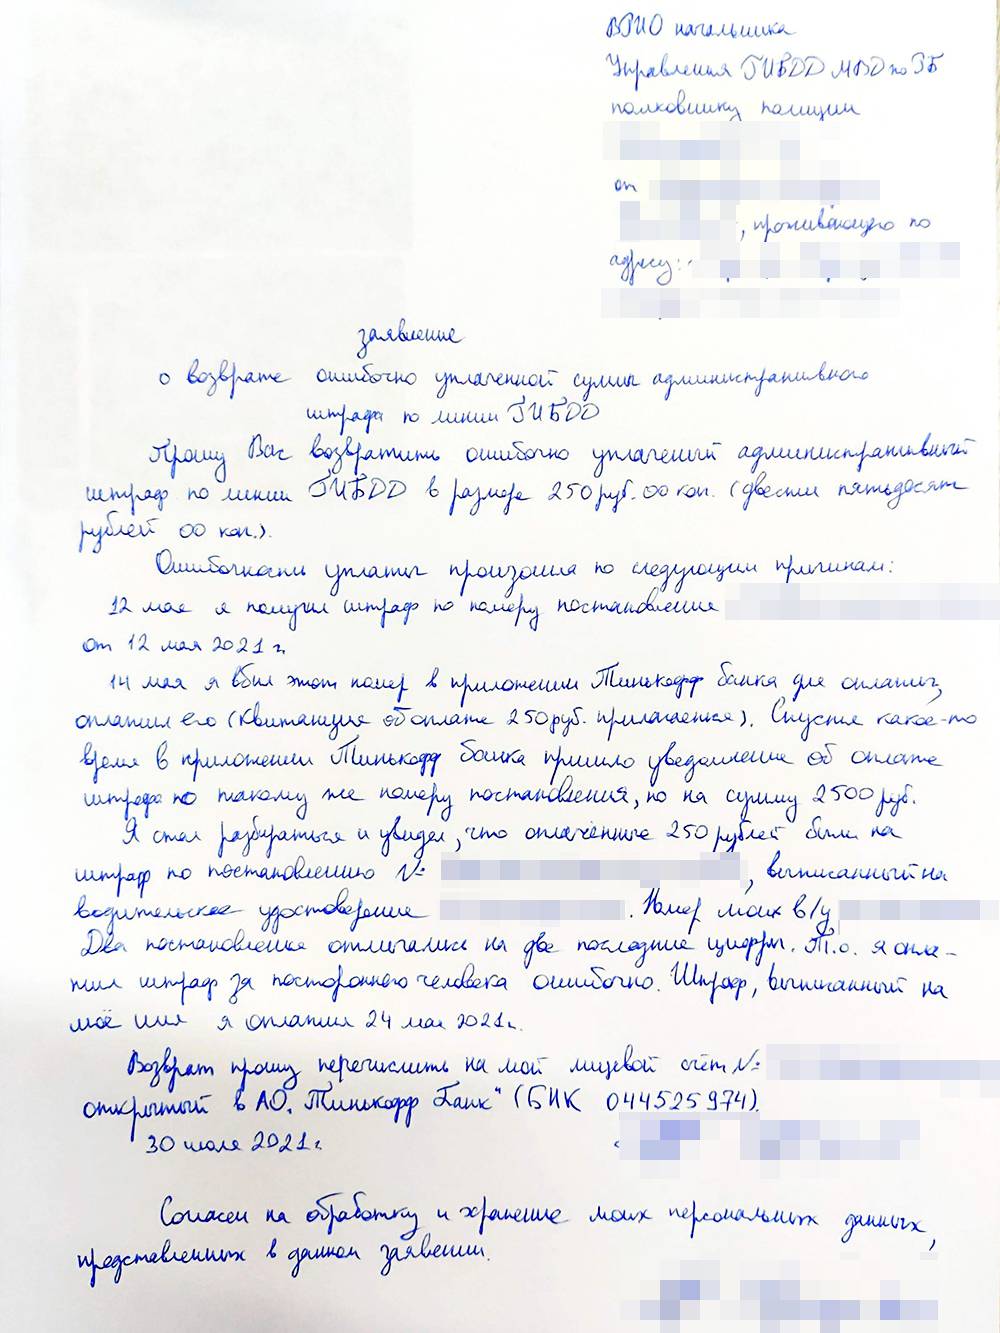 ВРИО начальника
Управления ГИБДД МВД по РБ
полковнику полиции
от
, проживающего по
адресу:
заявление
о возврате ошибочно уплаченной суммы административного
штрафа по линии ГИБДД
Прошу Вас возвратить ошибочно уплаченный административный
штраф по линии ГИБДД в размере 250 руб. 00 коп. (двести пятьдесят
рублей 00 коп.).
Ошибочность уплаты произошла по следующим причинам:
12 мая я получил штраф по номеру постановления
от 12 мая 2021 г.
14 мая я вбил этот номер в приложении Тинькофф банка для оплаты,
оплатил его (Квитанция об оплате 250 руб. прилагается). Спустя какое-то
время в приложении Тинькофф банка пришло уведомление об оплате
штрафа по такому же номеру постановления, но на сумму 2500 руб.
Я стал разбираться и увидел, что оплаченные 250 рублей были на
штраф по постановлению №: , выписанный на
водительское удостоверение . Номер моих в/у
Два постановления отличались на две последние цифры. Т.о. я опла-
тил штраф за постороннего человека ошибочно. Штраф, выписанный на
моё имя я оплатил 24 мая 2021 г.
Возврат прошу перечислить на мой лицевой счёт №:
открытый в АО „Тинькофф Банк" (БИК 044525974).
30 июля 2021 г.
Согласен на обработку и хранение моих персональных данных,
представленных в данном заявлении.